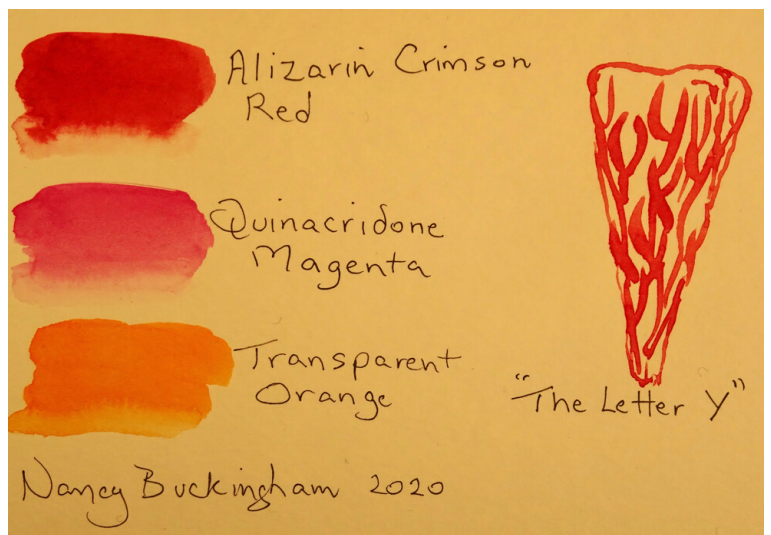 Alizarin Crimson
Red
Quinacridone
Magenta
Transparent
Orange
"The Letter Y"
Nancy Buckingham 2020